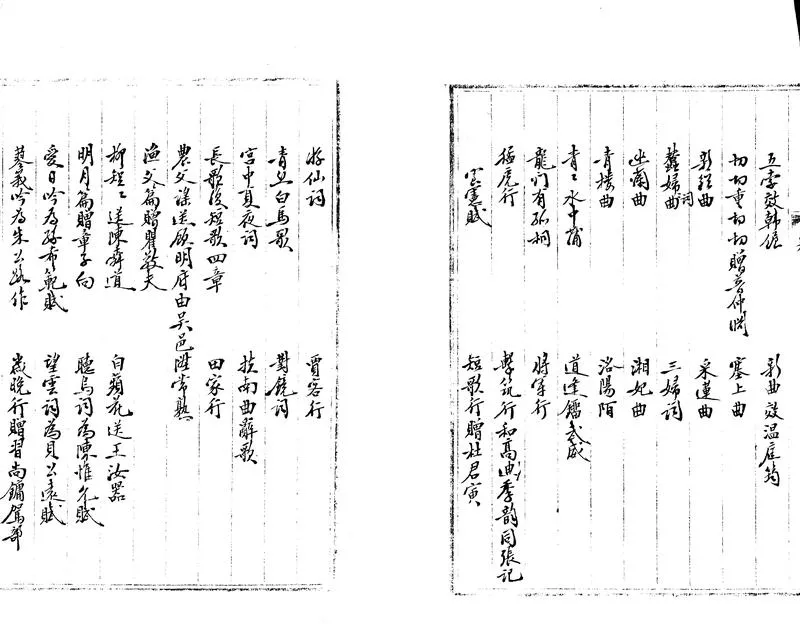 五季效韓偓
新曲效溫庭筠
切切重切切贈普仲淵
塞上曲
影絃曲
采蓮曲
蠶婦曲詞
三婦詞
幽蘭曲
湘妃曲
青樓曲
洛陽陌
青青水中蒲
道逢鐳武威
龍門有孤桐
將軍行
猛虎行
擊筑行和高典季韵同張記
空寒賦
短歌行贈杜君寅
游仙詞
賈客行
青絲白馬歌
對鏡詞
宮中夏夜詞
扶南曲辭歌
長歌後短歌四章
田家行
農父謠送顧明府由吳邑陞常熟
漁父篇贈瞿敬夫
柳短短送陳舜道
白蘋花送王汝器
明月篇贈章子向
聽烏詞為陳惟允賦
愛日吟為孫希範賦
望雲詞為貝公遠賦
蓼莪吟為朱公路作
歲晚行贈習尚鏞駕部